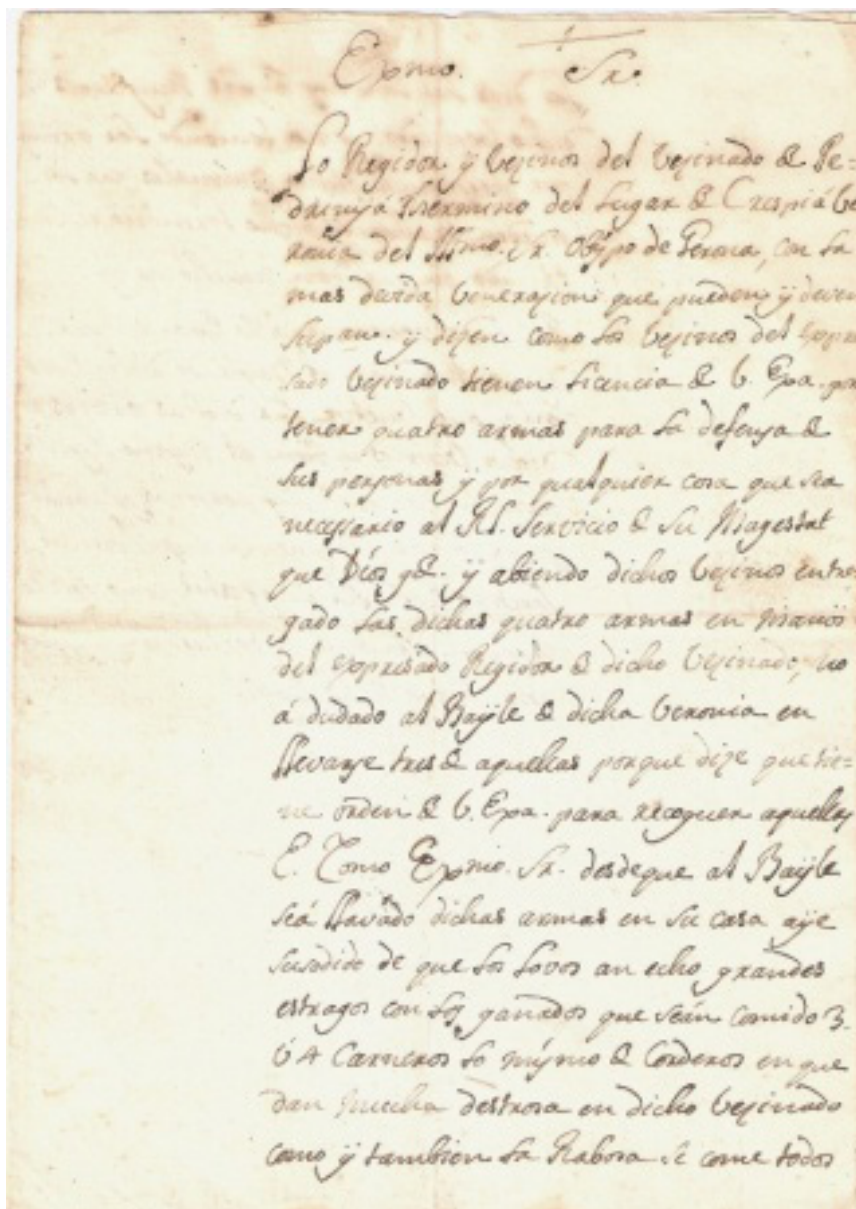 Exmo. Sr.
Lo Regidor y Vezinos del Vezinado de Pe=
drinyá Thermino del Lugar de Crespiá Ve
ronia del Illmo. Sr. Obispo de Gerona, con la
mas devida Venerazion que pueden y deven
supan. y dizen como los Vezinos del expre
sado Vezinado tienen licencia de V. Exa. par
tener quatro armas para la defensa de
sus personas y por qualquier cosa que sea
necessario al Rl. Servicio de su Magestat
que Dios gde. y abiendo dichos Vezinos entre
gado las dichas quatro armas en manos
del expresado Regidor de dicho Vezinado, no
á dudado al Bayle de dicha Veronia en
llevarse tres de aquellas porque dize que tie=
ne orden de V. Exa. para recoguer aquellas
E. Como Exmo. Sr. desdeque al Bayle
seá llavádo dichas armas en su casa aÿe
susedido de que los lovos an echo grandes
estragos con los ganados que seán comido 3.
ú 4 Carneros lo mismo de Corderos en que
dan mucha destrosa en dicho Vezinado
como ÿ tambien la Rabosa se come todos